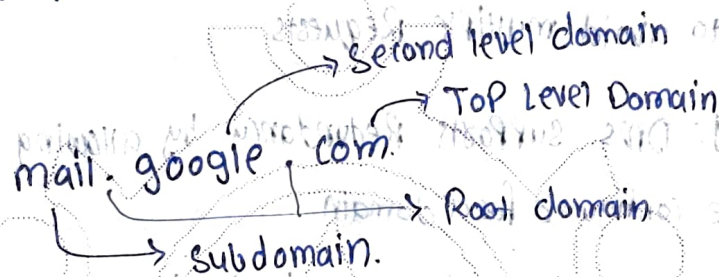 second level domain
Top Level Domain
mail. google . com.
Root domain
subdomain.